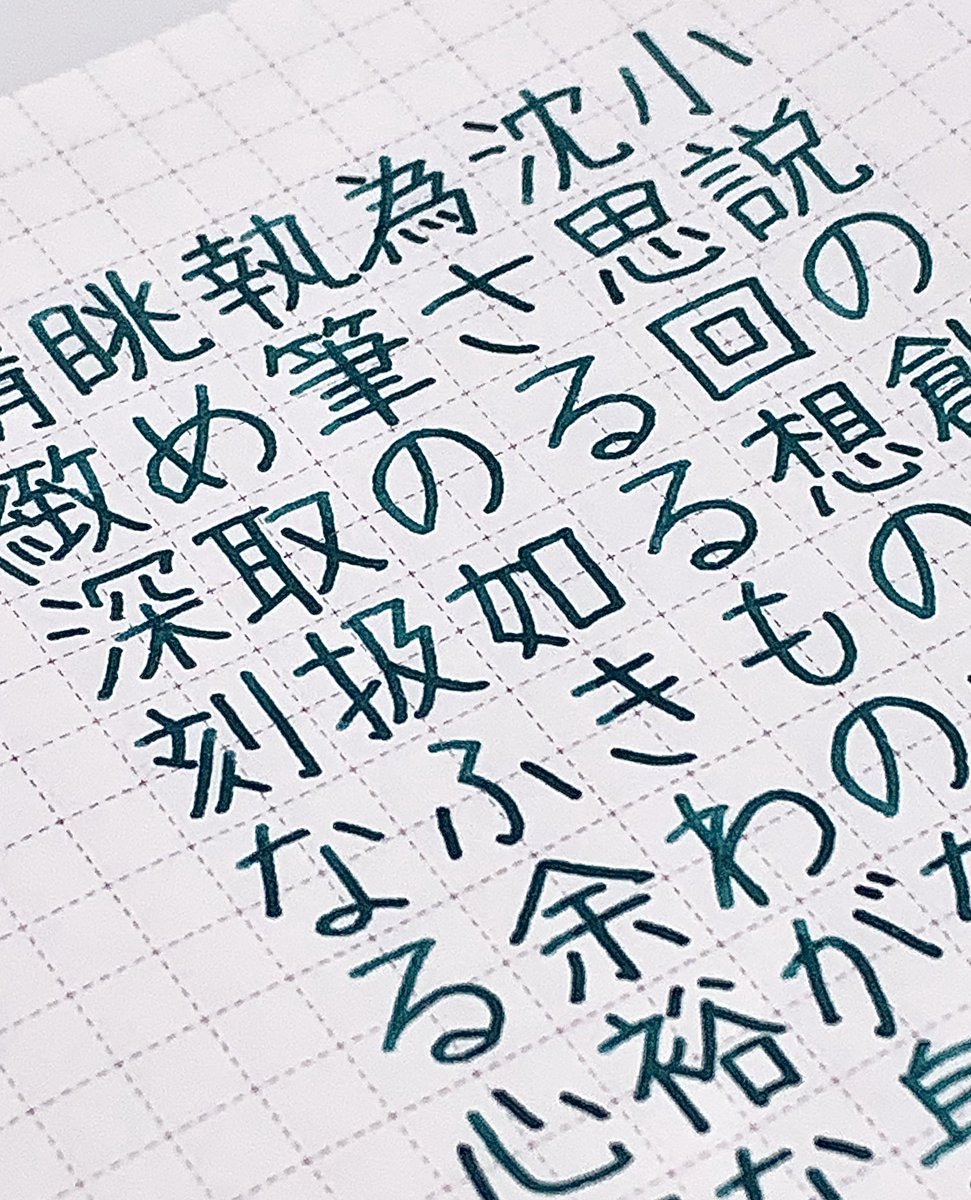 小説の創
沈思回想の
為さるるもの
執筆の如きわが
眺め取扱ふ余裕な
緻深刻なる心